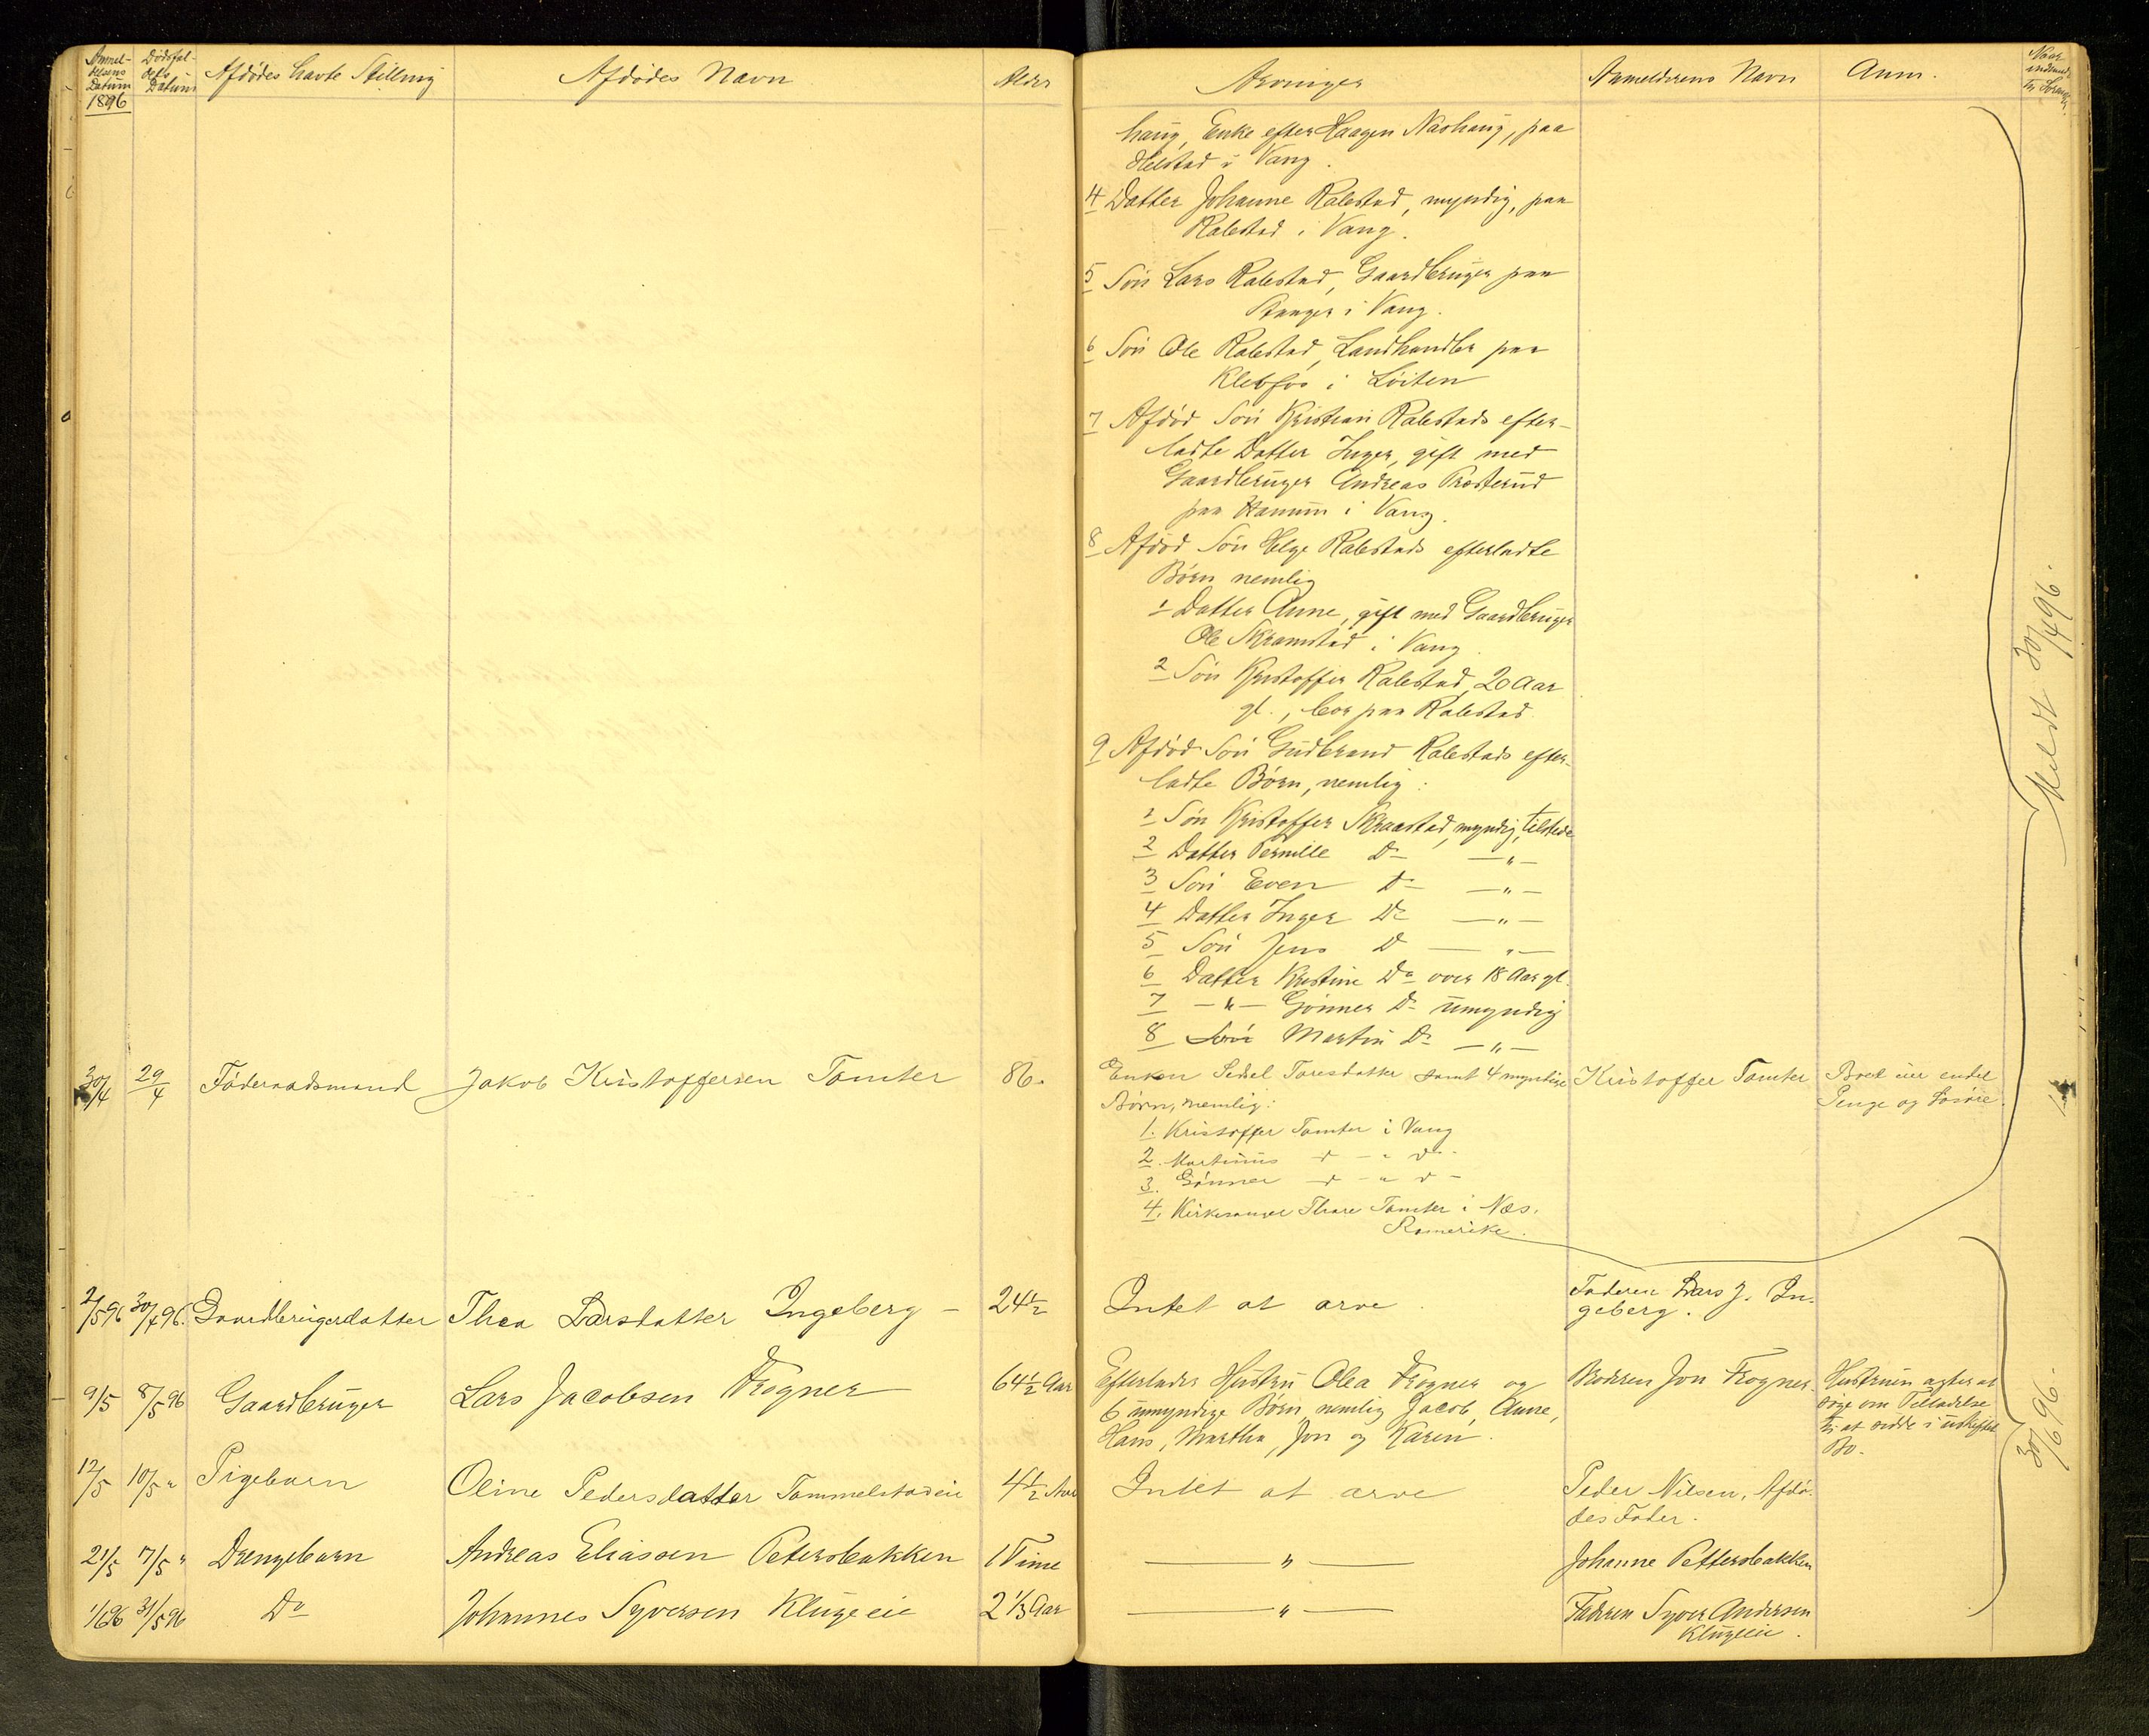 Anmel-
delsens
Datum
1896
Dødsfal-
dets
Datum
Afdødes havte Stilling
Afdødes Navn
Alder
Arvinger
Anmelderens Navn
Anm.
Naar
indsendt
til Sorens.
haug, Enke efter Haagen Nashaug, paa
i Vang.
4 Datter Johanne Rabstad, myndig, paa
Rabstad i Vang.
5 Søn Lars Rabstad, Gaardbruger paa
i Vang.
6 Søn Ole Rabstad, Landhandler paa
Klebfos i Løiten
7 Afdød Søn Kristian Rabstads efter-
ladte Datter Inger, gift med
Gaardbruger Andreas Prosterud
paa Hanum i Vang.
8 Afdød Søn Helge Rabstads efterladte
Børn nemlig
1 Datter Anne, gift med Gaardbruger
Ole Skramstad i Vang.
2 Søn Kristoffer Rabstad, 20 Aar
gl., bor paa Rabstad.
9 Afdød Søn Gudbrand Rabstads efter-
ladte Børn, nemlig:
1 Søn Kristoffer Skraastad, myndig, tilstede
2 Datter Pernille Do —"—
3 Søn Even Do —"—
4 Datter Inger Do —"—
5 Søn Jens Do —"—
6 Datter Kristine Do over 18 Aar gl.
7 —"— Gønner Do umyndig
8 Søn Martin Do —"—
30/4 29/4 Føderaadsmand Jakob Kristoffersen Tomter 86. Enken Sidsel Toresdatter samt 4 myndige Kristoffer Tomter Boet eier endel
Børn, nemlig: Penge og Løsøre.
1. Kristoffer Tomter i Vang
2. Martinus d - " d -
3. Gønner d - " d -
4. Kirkesanger Thore Tomter i Næs,
Romerike.
Meldt 30/4 96.
2/5 96 30/4 96. Gaardbrugerdatter Thea Larsdatter Ingeberg — 24½ Intet at arve. Faderen Lars J. In-
geberg.
9/5 8/5 96 Gaardbruger Lars Jacobsen Frogner 64½ Aar Efterlader Hustru Olea Frogner og Broderen Jon Frogner. Hustruen agter at
6 umyndige Børn nemlig Jacob, Anne, søge om Tilladelse
Hans, Martha, Jon og Karen. til at sidde i uskiftet
Bo.
12/5 10/5 " Pigebarn Oline Pedersdatter Tommelstadeie 4½ Aar Intet at arve Peder Nilsen, Afdø-
des Fader.
21/5 7/5 " Drengebarn Andreas Eliassen Petersbakken 1 Time —"— Johanne Pettersbakken
1/6 96 31/5 96 Do Johannes Syversen Klugeeie 2 1/3 Aar —"— Faderen Syver Andersen
Klugeeie.
30/6 96.